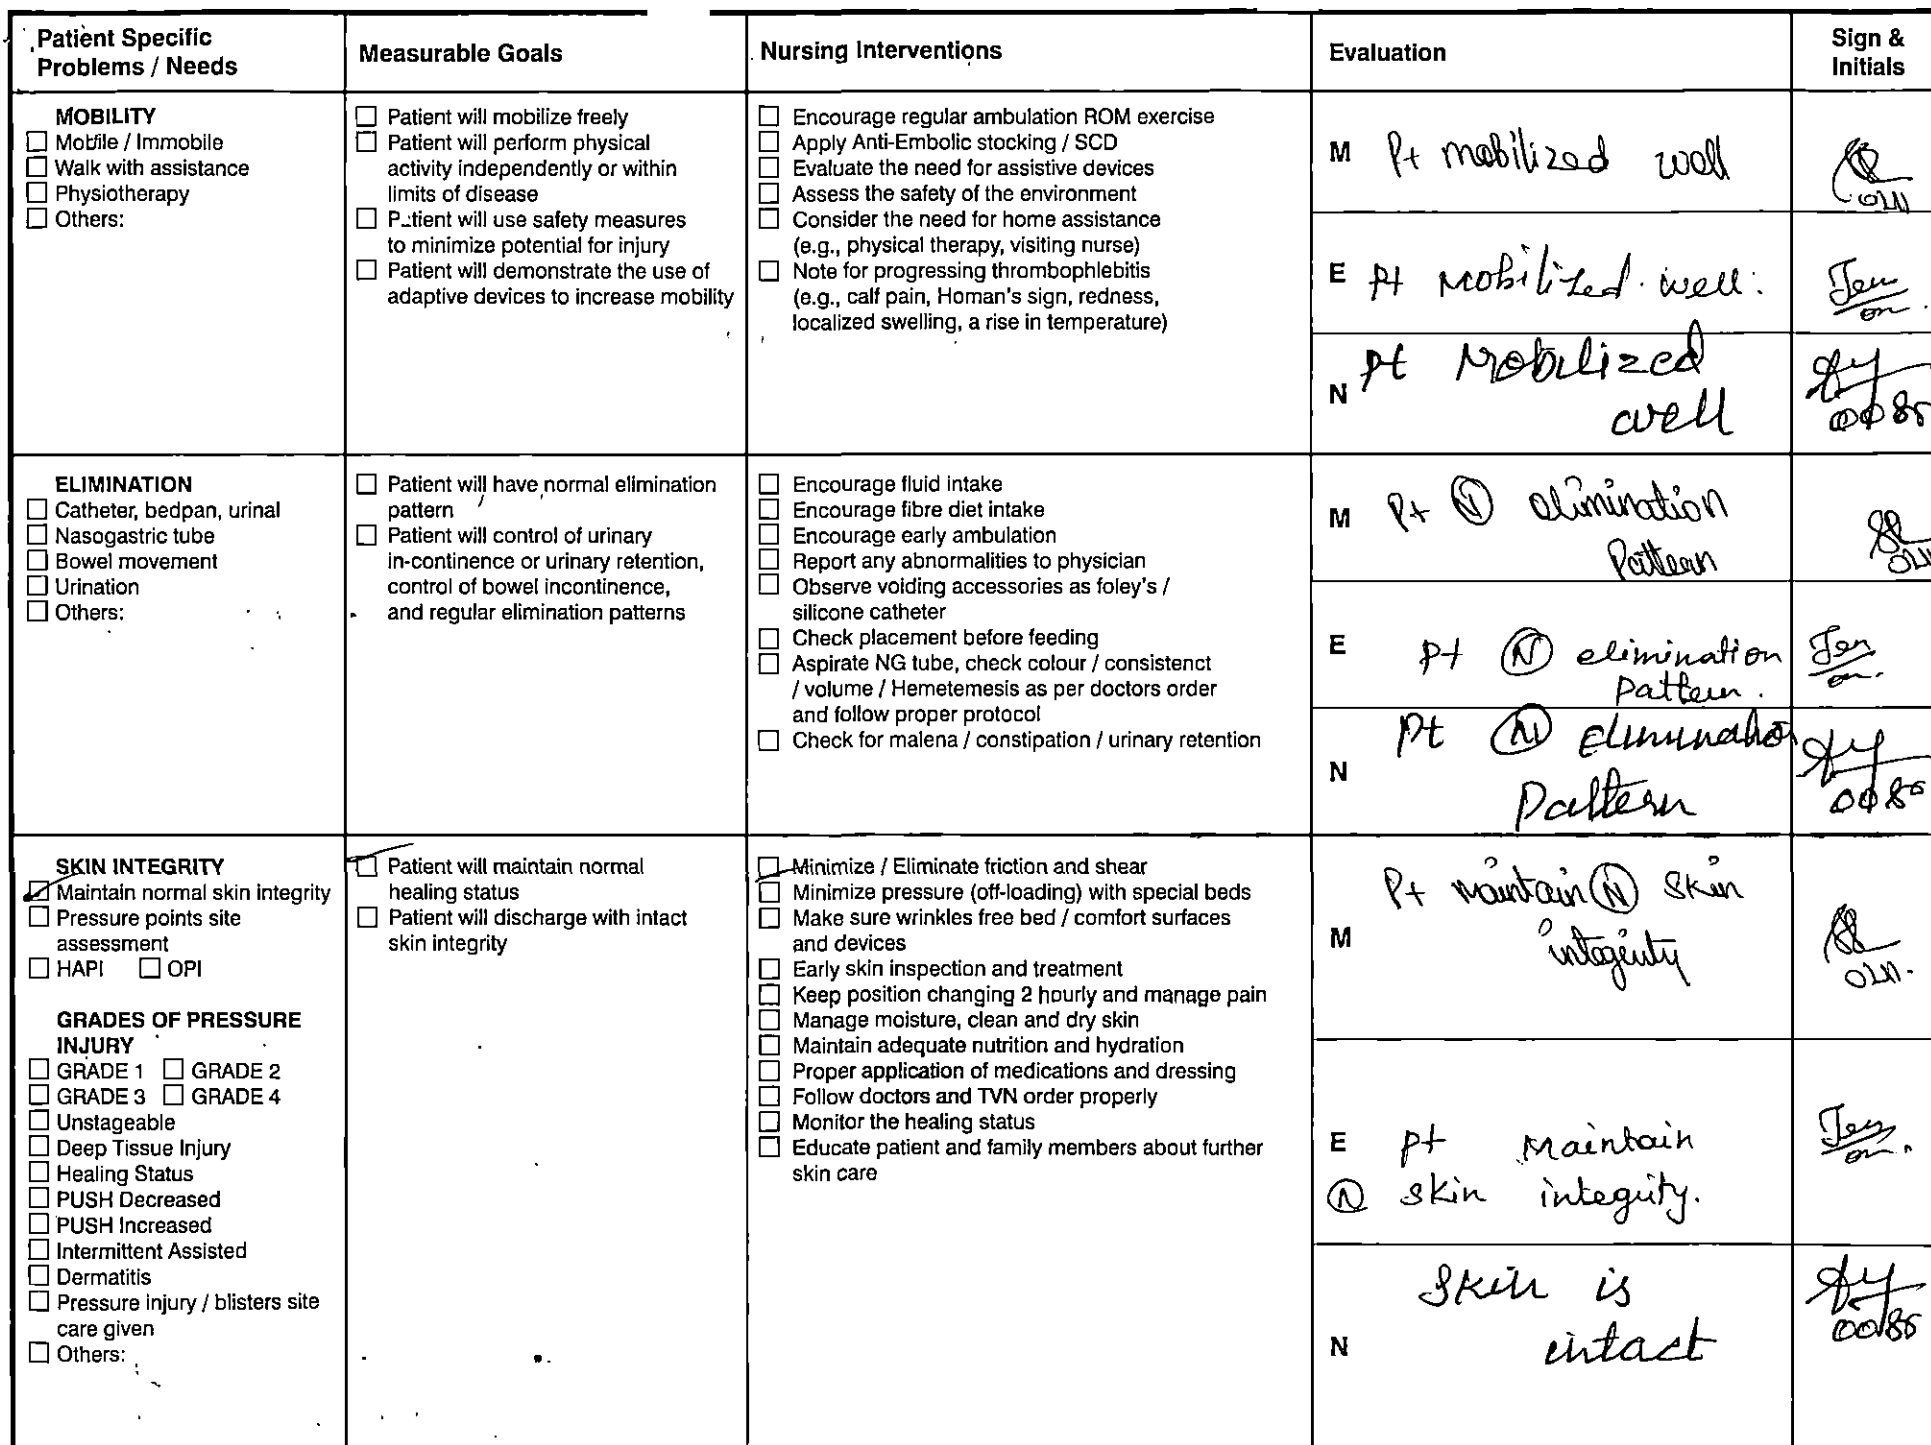 Patient Specific
Problems / Needs
Measurable Goals
Nursing Interventions
Evaluation
Sign &
Initials
MOBILITY
☐ Mobile / Immobile
☐ Walk with assistance
☐ Physiotherapy
☐ Others:
☐ Patient will mobilize freely
☐ Patient will perform physical
activity independently or within
limits of disease
☐ Patient will use safety measures
to minimize potential for injury
☐ Patient will demonstrate the use of
adaptive devices to increase mobility
☐ Encourage regular ambulation ROM exercise
☐ Apply Anti-Embolic stocking / SCD
☐ Evaluate the need for assistive devices
☐ Assess the safety of the environment
☐ Consider the need for home assistance
(e.g., physical therapy, visiting nurse)
☐ Note for progressing thrombophlebitis
(e.g., calf pain, Homan's sign, redness,
localized swelling, a rise in temperature)
M Pt mobilized well
E Pt Mobilized well.
N Pt Mobilized
well
ELIMINATION
☐ Catheter, bedpan, urinal
☐ Nasogastric tube
☐ Bowel movement
☐ Urination
☐ Others:
☐ Patient will have normal elimination
pattern
☐ Patient will control of urinary
in-continence or urinary retention,
control of bowel incontinence,
and regular elimination patterns
☐ Encourage fluid intake
☐ Encourage fibre diet intake
☐ Encourage early ambulation
☐ Report any abnormalities to physician
☐ Observe voiding accessories as foley's /
silicone catheter
☐ Check placement before feeding
☐ Aspirate NG tube, check colour / consistenct
/ volume / Hemetemesis as per doctors order
and follow proper protocol
☐ Check for malena / constipation / urinary retention
M Pt Ⓝ elimination
Pattern
E pt Ⓝ elimination
pattern.
N Pt Ⓝ
Pattern
SKIN INTEGRITY
☑ Maintain normal skin integrity
☐ Pressure points site
assessment
☐ HAPI ☐ OPI
GRADES OF PRESSURE
INJURY
☐ GRADE 1 ☐ GRADE 2
☐ GRADE 3 ☐ GRADE 4
☐ Unstageable
☐ Deep Tissue Injury
☐ Healing Status
☐ PUSH Decreased
☐ PUSH Increased
☐ Intermittent Assisted
☐ Dermatitis
☐ Pressure injury / blisters site
care given
☐ Others:
☑ Patient will maintain normal
healing status
☐ Patient will discharge with intact
skin integrity
☑ Minimize / Eliminate friction and shear
☐ Minimize pressure (off-loading) with special beds
☐ Make sure wrinkles free bed / comfort surfaces
and devices
☐ Early skin inspection and treatment
☐ Keep position changing 2 hourly and manage pain
☐ Manage moisture, clean and dry skin
☐ Maintain adequate nutrition and hydration
☐ Proper application of medications and dressing
☐ Follow doctors and TVN order properly
☐ Monitor the healing status
☐ Educate patient and family members about further
skin care
Pt maintain Ⓝ skin
M integrity
E pt Maintain
Ⓝ skin integrity.
Skin is
N intact